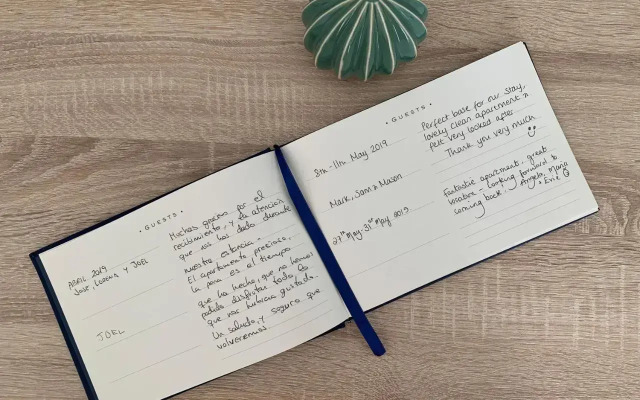 • GUESTS •
ABRIL 2019
JOSE, LORENA Y JOEL
JOEL
Muchas gracias por el
recibimiento, y la atención
que nos has dado durante
nuestra estancia.
El apartamento precioso,
la pena es el tiempo
que ha hecho, que no hemos
podido disfrutar todo lo
que nos hubiera gustado.
Un saludo, y seguro que
volveremos.
• GUESTS •
8th - 11th May 2019
Mark, Sam & Mason
Perfect base for our stay,
lovely clean apartment &
felt very looked after
Thank you very much
27th May-31st May 2019
Fantastic apartment, great
location - looking forward to
coming back. Angela, Maria
& Evie